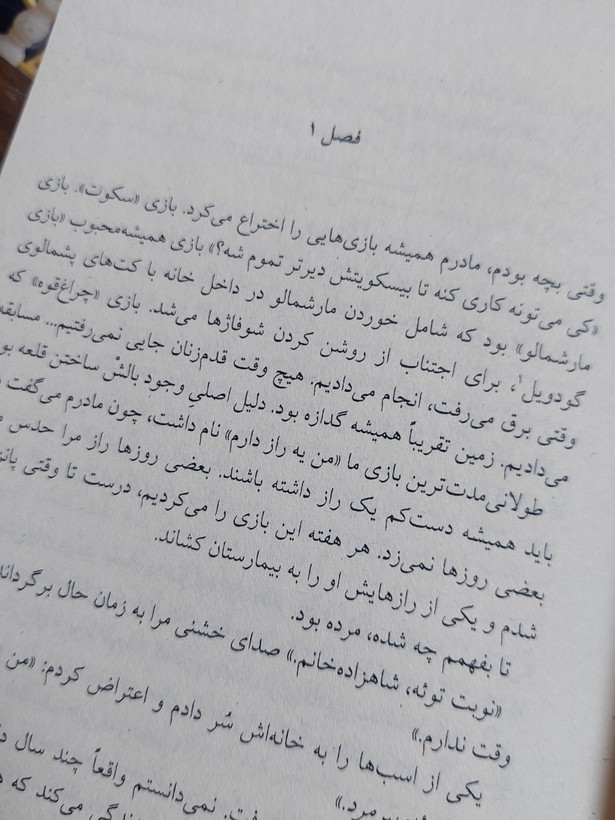 فصل ۱
وقتی بچه بودم، مادرم همیشه بازی‌هایی را اختراع می‌کرد. بازی «سکوت». بازی
«کی می‌تونه کاری کنه تا بیسکویتش دیرتر تموم شه؟» بازی همیشه‌محبوب «بازی
مارشمالو» بود که شامل خوردن مارشمالو در داخل خانه با کت‌های پشمالوی
گودویل۱، برای اجتناب از روشن کردن شوفاژها می‌شد. بازی «چراغ‌قوه» که
وقتی برق می‌رفت، انجام می‌دادیم. هیچ وقت قدم‌زنان جایی نمی‌رفتیم... مسابقه
می‌دادیم. زمین تقریباً همیشه گدازه بود. دلیل اصلیِ وجود بالشْ ساختن قلعه
طولانی‌مدت‌ترین بازی ما «من یه راز دارم» نام داشت، چون مادرم می‌گفت
باید همیشه دست‌کم یک راز داشته باشند. بعضی روزها راز مرا حدس
بعضی روزها نمی‌زد. هر هفته این بازی را می‌کردیم، درست تا وقتی
شدم و یکی از رازهایش او را به بیمارستان کشاند.
تا بفهمم چه شده، مرده بود.
«نوبت توئه، شاهزاده‌خانم.» صدای خشنی مرا به زمان حال
وقت ندارم.»
یکی از اسب‌ها را به خانه‌اش سُر دادم و اعتراض کردم: «من
نمی‌دانستم واقعاً چند سال
می‌کند که